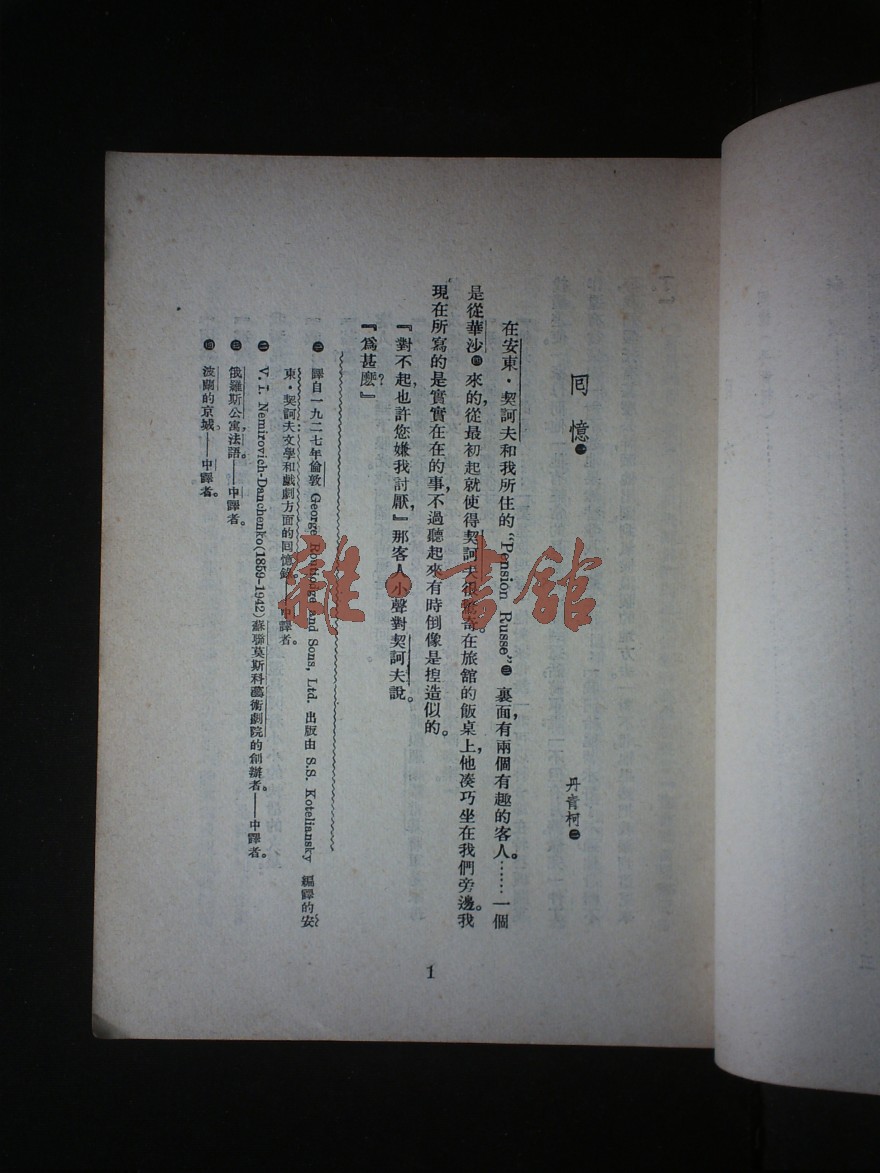 囘憶㊀
丹青柯㊁
在安東・契訶夫和我所住的“Pension Russe”㊂裏面，有兩個有趣的客人。……一個
是從華沙㊃來的從最初起就使得契訶夫很驚奇。在旅舘的飯桌上，他湊巧坐在我們旁邊。我
現在所寫的是實實在在的事，不過聽起來有時倒像是揑造似的。
『對不起，也許您嫌我討厭，』那客人小聲對契訶夫說。
『爲甚麽？』
㊀ 譯自一九二七年倫敦 George Routledge and Sons, Ltd. 出版由 S.S. Koteliansky 編譯的安
東・契訶夫文學和戲劇方面的回憶錄。——中譯者。
㊁ V. I. Nemirovich-Danchenko(1859-1942)蘇聯莫斯科藝術劇院的創辦者。——中譯者。
㊂ 俄羅斯公寓，法語。——中譯者。
㊃ 波蘭的京城——中譯者。
1
雜・書舘